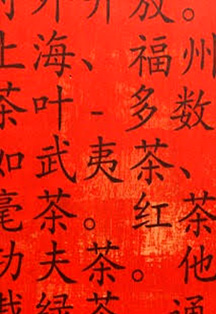 开放。
上海、福州
茶叶-多数
如武夷茶、
毫茶。红茶
功夫茶。他
绿茶 通